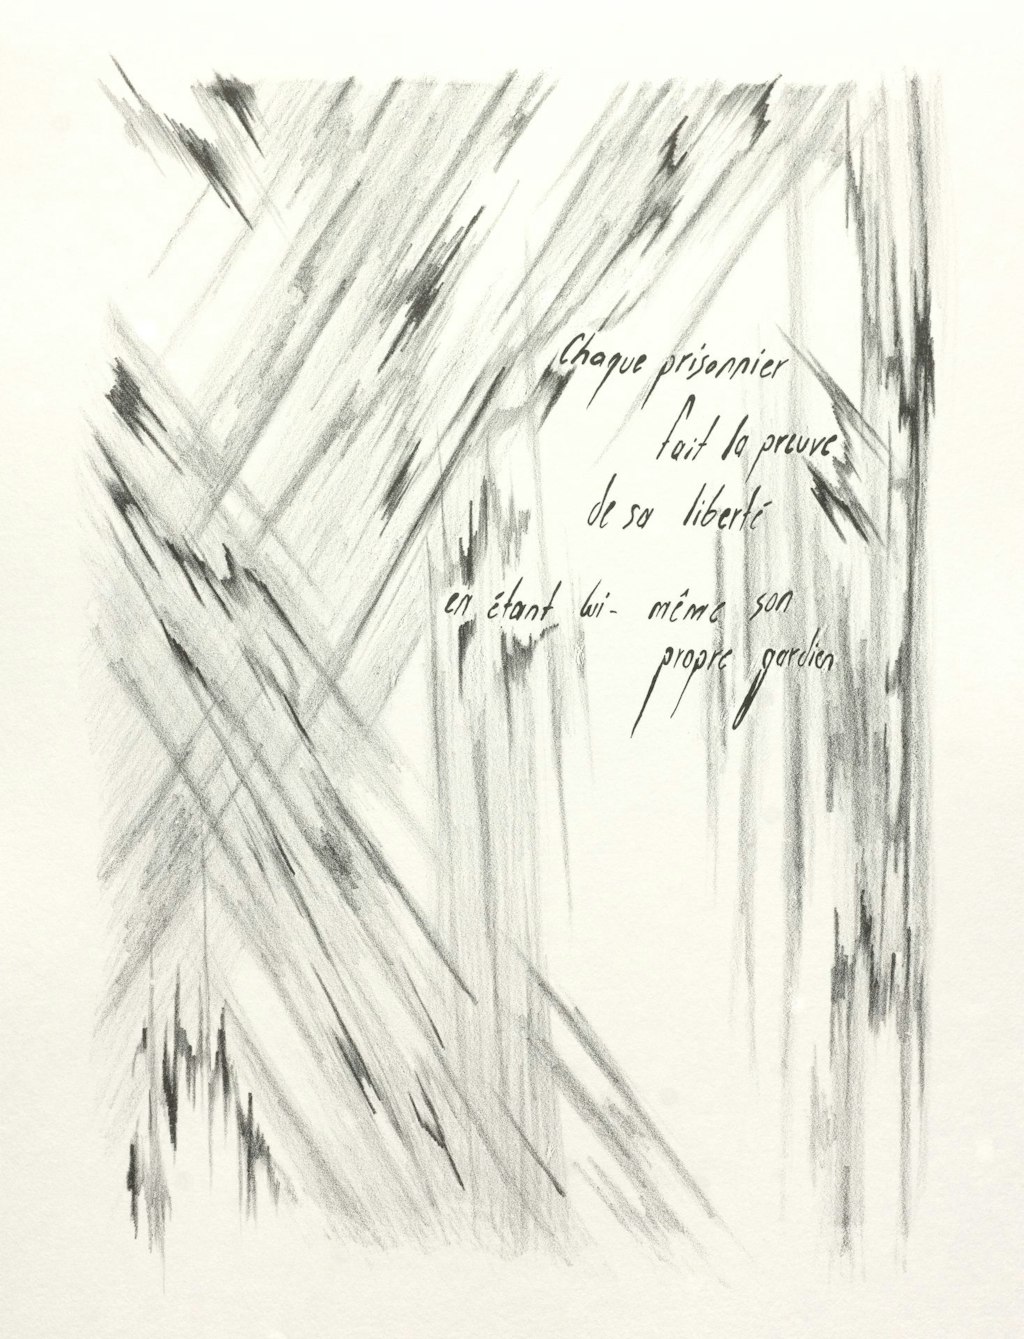 Chaque prisonnier
fait la preuve
de sa liberté
en étant lui-même son
propre gardien